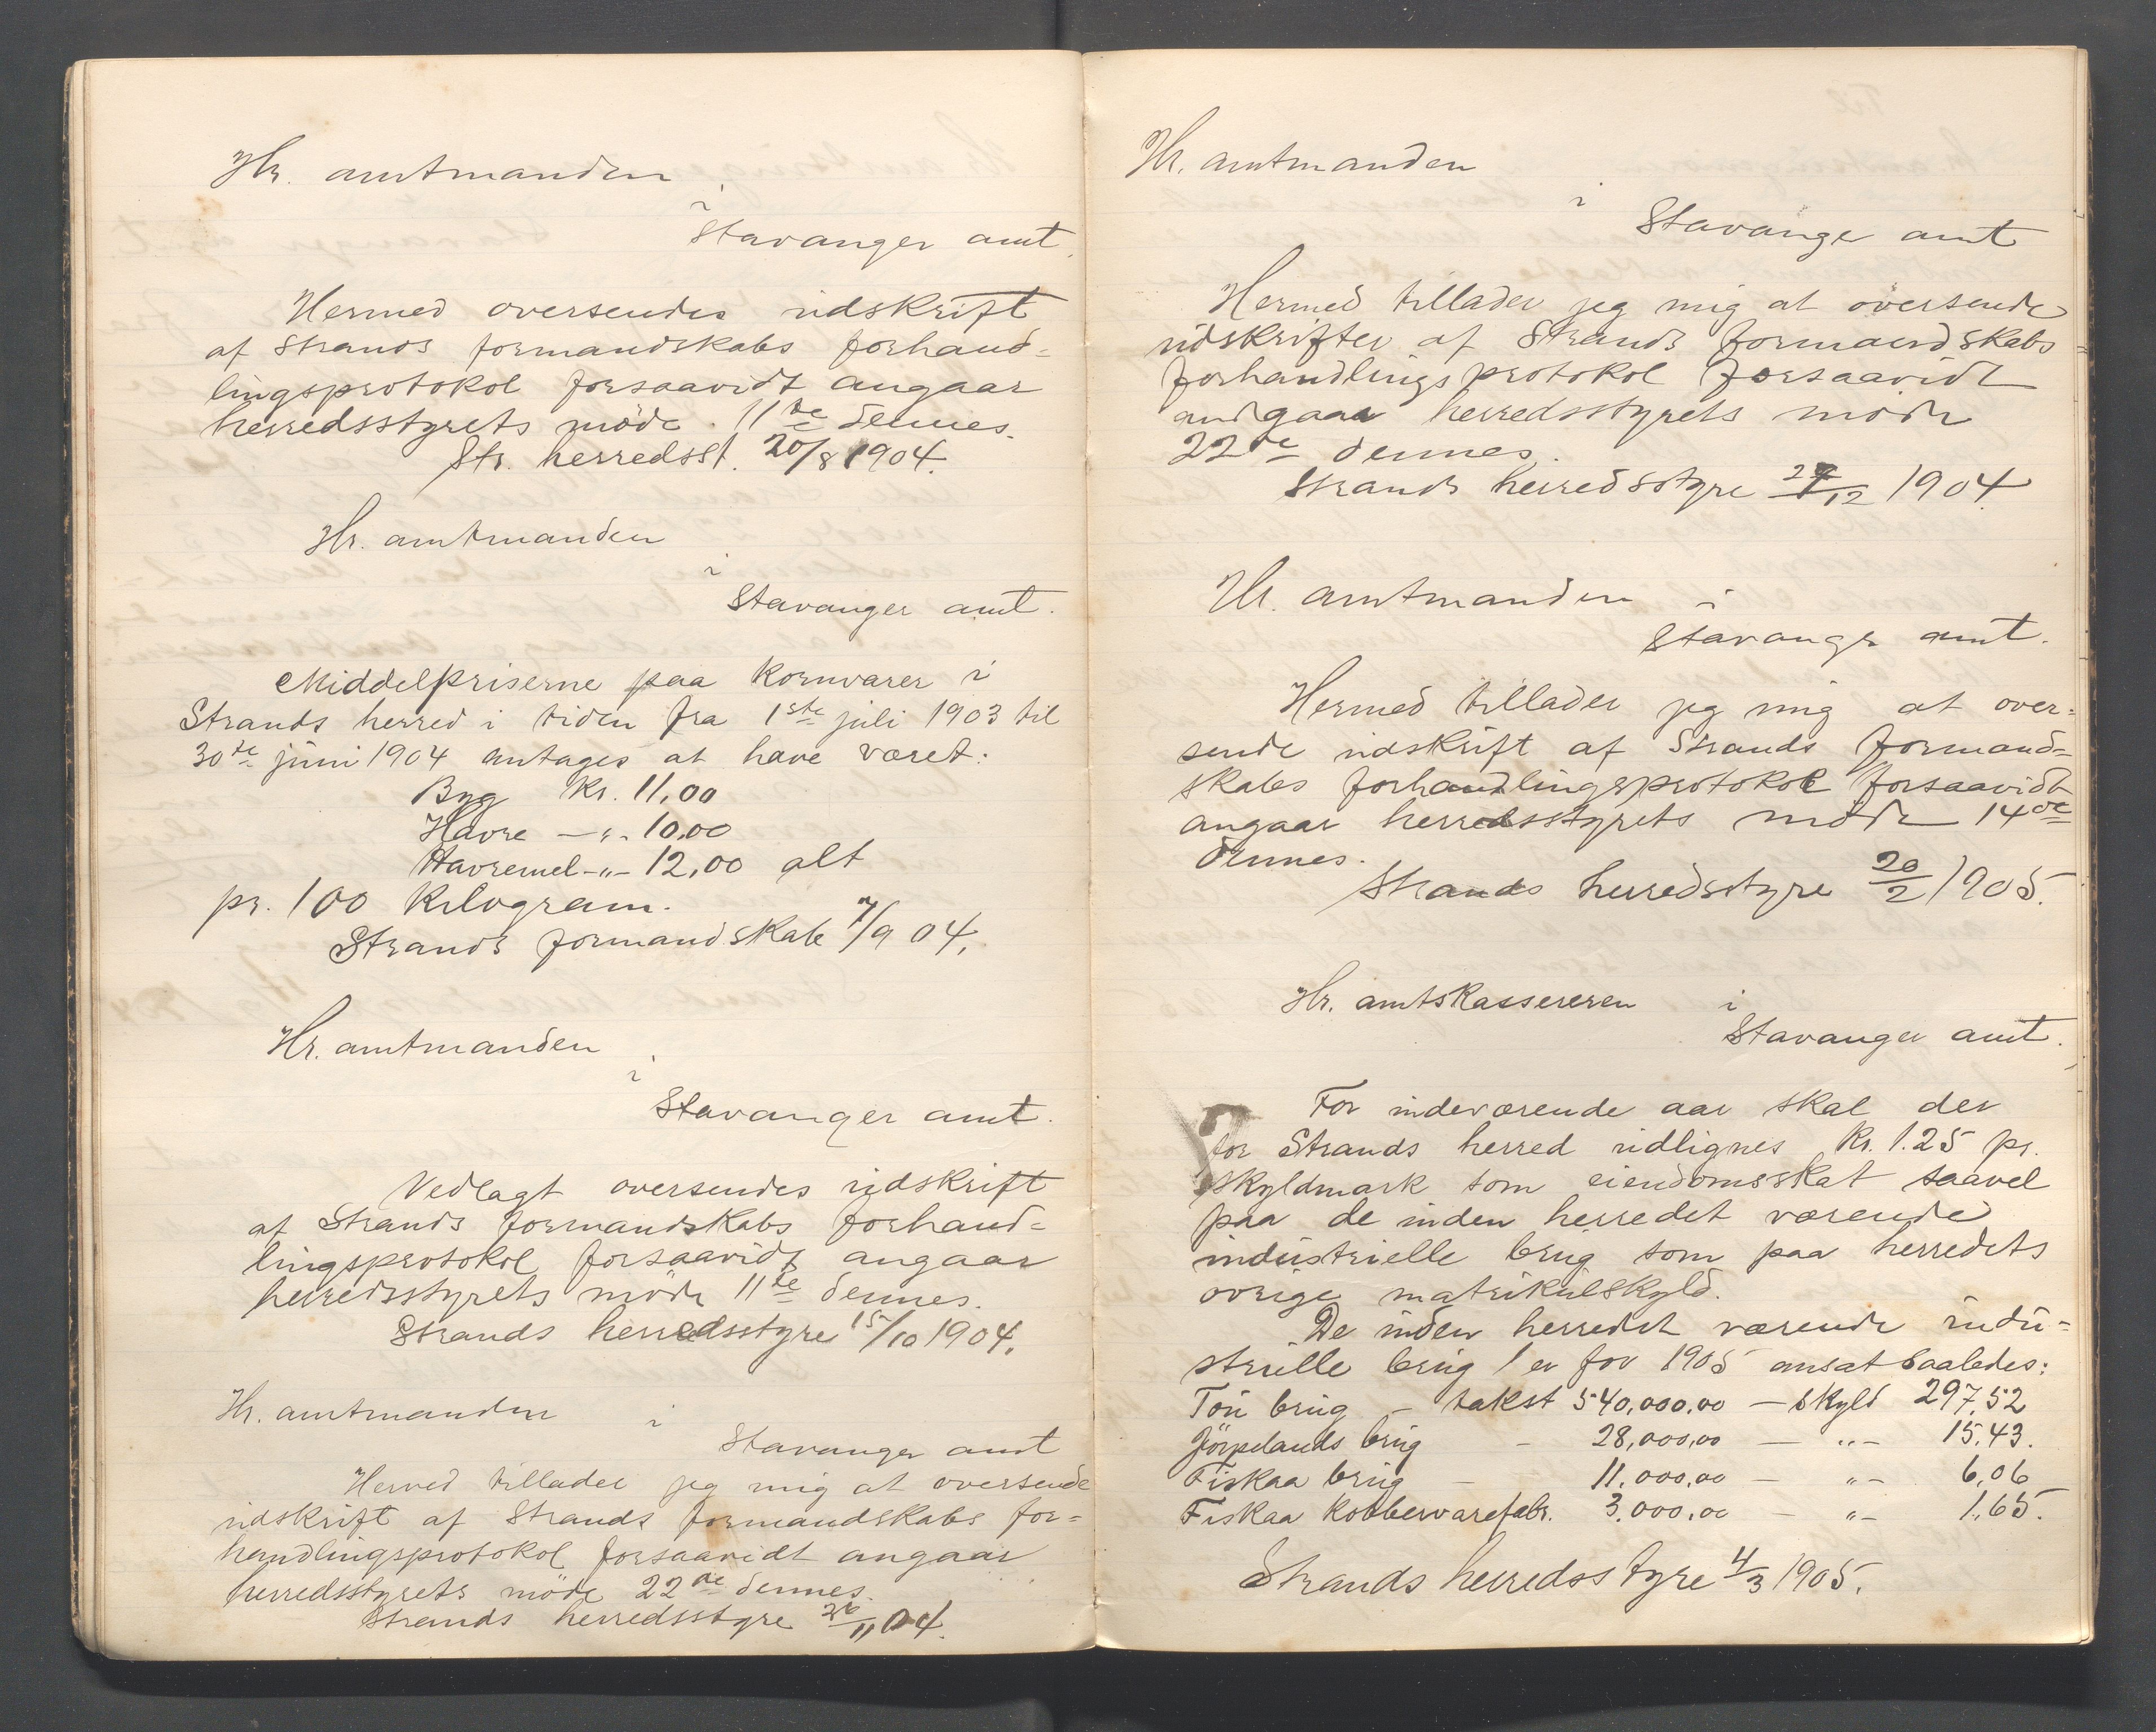 Hr. amtmanden
i
Stavanger amt.
Hermed oversendes udskrift
af Strands formandskabs forhand=
lingsprotokol forsaavidt angaar
herredsstyrets møde 11te dennes.
Str. herredsst. 20/8 1904.
Hr. amtmanden
i
Stavanger amt.
Middelpriserne paa kornvarer i
Strands herred i tiden fra 1ste juli 1903 til
30te juni 1904 antages at have været:
Byg Kr. 11,00
Havre -"- 10,00
Havremel -"- 12,00 alt
pr. 100 kilogram.
Strands formandskab 7/9 04.
Hr. amtmanden
i
Stavanger amt.
Vedlagt oversendes udskrift
af Strands formandskabs forhand=
lingsprotokol forsaavidt angaar
herredsstyrets møde 11te dennes.
Strands herredsstyre 15/10 1904.
Hr. amtmanden i
Stavanger amt
Herved tillader jeg mig at oversende
udskrift af Strands formandskabs for=
handlingsprotokol forsaavidt angaar
herredsstyrets møde 22de dennes.
Strands herredsstyre /11 04.
Hr. amtmanden
i
Stavanger amt
Hermed tillader jeg mig at oversende
udskrifter af Strands formandskabs=
forhandlingsprotokol forsaavidt
andgaar herredsstyrets møde
22de dennes.
Strands herredsstyre /12 1904.
Hr. amtmanden i
Stavanger amt.
Hermed tillader jeg mig at over=
sende udskrift af Strands formand=
skabs forhandlingsprotokol forsaavidt
angaar herredsstyrets møde 14de
dennes.
Strands herredsstyre 20/2 1905.
Hr. amtskassereren i
Stavanger amt.
For indeværende aar skal der
for Strands herred udlignes Kr. 1.25 pr.
skyldmark som eiendomsskat saavel
paa de inden herredet værende
industrielle brug som paa herredets
øvrige matrikulskyld.
De inden herredet værende indu=
strielle brug er for 1905 ansat saaledes:
Tou brug - takst 540,000,00 - skyld 297,52
Jørpelands brug - 28,000,00 - "- 15,43.
Fiskaa brug - 11,000,00 - "- 6,06
Fiskaa kobbervarefabr. 3,000,00 - "- 1,65.
Strands herredsstyre 4/3 1905.